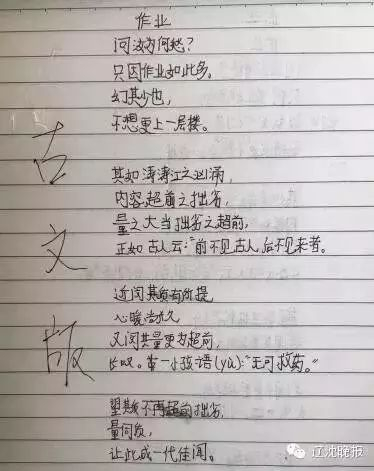 作业
问汝为何愁?
只因作业如此多。
幻其少也,
不想更上一层楼。
其如涛涛江之汹涌,
内容超前之拙劣,
量之大当拙劣之超前,
正如古人云:"前不见古人,后不见来者。
近闻其质有所提
心暖当久
又闻其量更为超前,
长叹。第一小孩语(yù):"无可救药。"
望其不再超前拙劣,
量同质,
让此成一代佳闻。
古文版
辽沈晚报